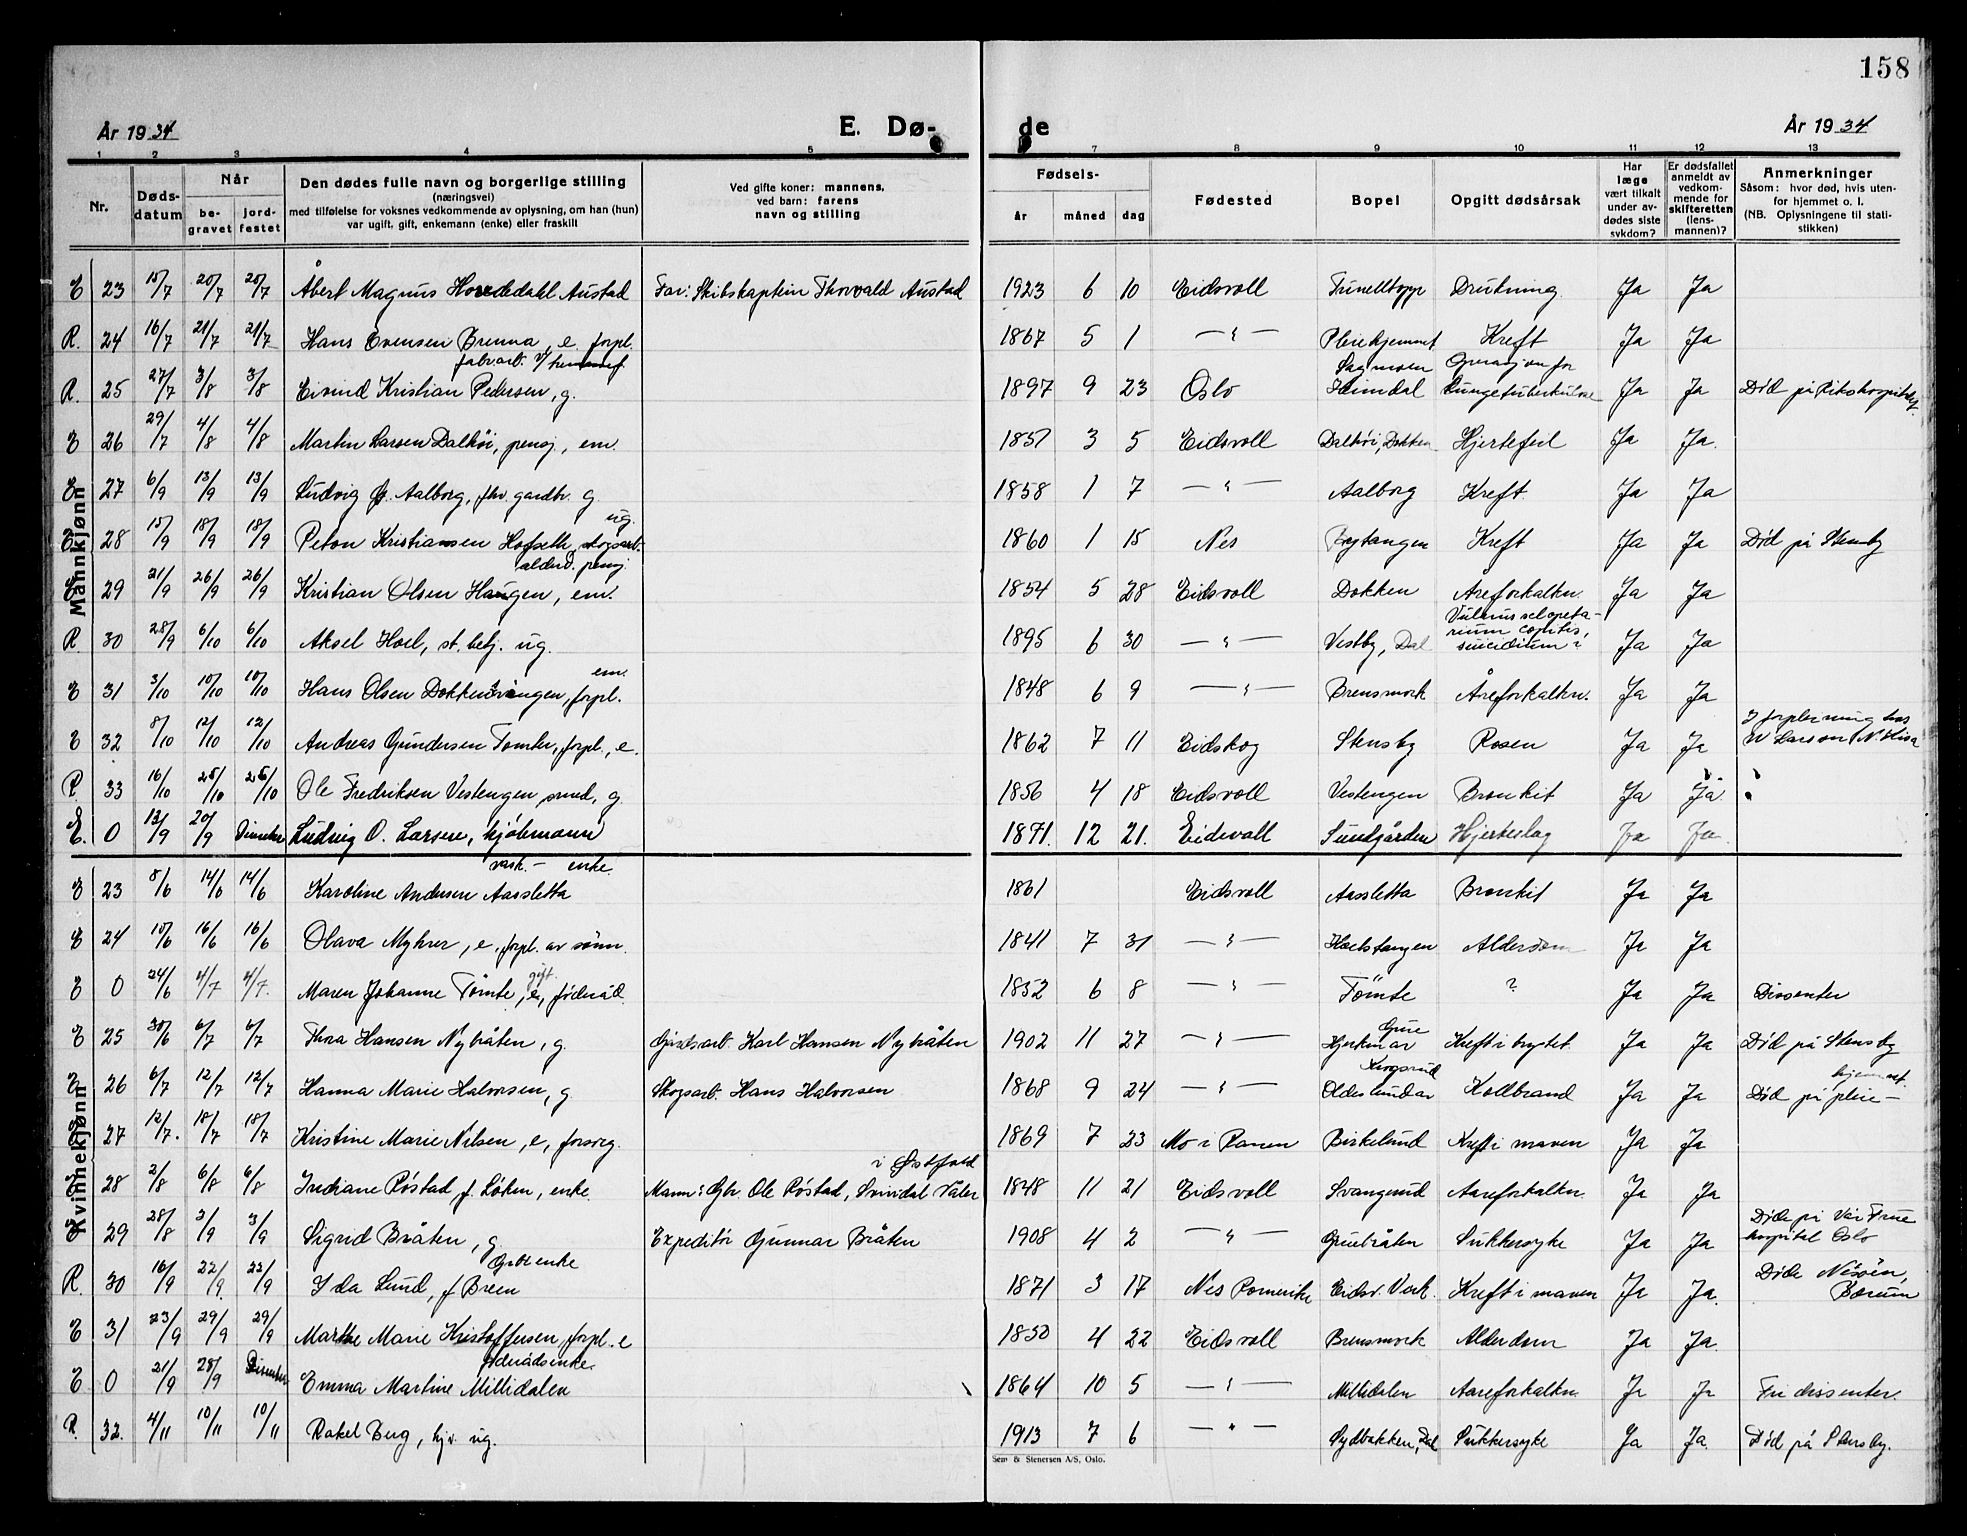 158
År 1934
E. Dø-
de
År 1934
1 2 3 4 5 7 8 9 10 11 12 13
Nr.
Døds-
datum
Når
be-
gravet
jord-
festet
Den dødes fulle navn og borgerlige stilling
(næringsvei)
med tilføielse for voksnes vedkommende av oplysning, om han (hun)
var ugift, gift, enkemann (enke) eller fraskilt
Ved gifte koner: mannens,
ved barn: farens
navn og stilling
Fødsels-
år måned dag
Fødested
Bopel
Opgitt dødsårsak
Har
læge
vært tilkalt
under av-
dødes siste
sykdom?
Er dødsfallet
anmeldt av
vedkom-
mende for
skifteretten
(lens-
mannen)?
Anmerkninger
Såsom: hvor død, hvis uten-
for hjemmet o. l.
(NB. Oplysningene til stati-
stikken)
Mannkjønn
E 23 15/7 20/7 20/7 Åbert Magnus Austad Far: Skibskaptein Thorvald Austad 1923 6 10 Eidsvoll Drukning Ja Ja
R. 24 16/7 21/7 21/7 Hans Evensen Brenna, e. forpl. 1867 5 1 — " — Pleiehjemmet Kreft Ja Ja
fabrarb. Sagmoen Operasjon for
R. 25 27/7 3/8 3/8 Eivind Kristian Pedersen, g. 1897 9 23 Oslo Heimdal Lungetuberkulose Ja Ja Død på Rikshospitalet
E 26 29/7 4/8 4/8 Martin Larsen Dalhöi, pensj., em. 1851 3 5 Eidsvoll Dalhöi, Dokken Hjertefeil Ja Ja.
E 27 6/9 13/9 13/9 Ludvig Aalborg, fhv. gardbr. g. 1858 1 7 — " — Aalborg Kreft. Ja Ja
ug.
E 28 15/9 18/9 18/9 Peton Kristiansen Hofseth, skogsarb. 1860 1 15 Nes Kreft Ja Ja Død på Stensby
alderd. pensj.
E 29 21/9 26/9 26/9 Kristian Olsen Haugen, em. 1854 5 28 Eidsvoll Dokken Åreforkalkn. Ja Ja
Vulnus sclopeta-
rium capitis,
R. 30 28/9 6/10 6/10 Aksel Hoel, st. betj. ug. 1895 6 30 — " — Vestby, Dal suicidium? Ja Ja
em.
E 31 3/10 10/10 10/10 Hans Olsen Dokkensvangen, forpl. 1848 6 9 — " — Brensmork Åreforkalkn. Ja Ja
I forpleining hos
E 32 8/10 12/10 12/10 Andreas Gundersen Tomter, forpl., e. 1862 7 11 Eidskog Stensby Rosen Ja Ja Larsen
R. 33 16/10 25/10 25/10 Ole Fredriksen Vestengen smed, g. 1856 4 18 Eidsvoll Vestengen Bronkit Ja Ja
E. 0 13/9 20/9 Dissenter Ludvig O. Larsen, kjöbmann 1871. 12 21. Eidsvall Sundgården Hjerteslag Ja Ja.
Kvinnekjønn
vask.- enke.
E 23 8/6 14/6 14/6 Karoline Andersen Aassletta 1861 Eidsvoll Aassletta Bronkit Ja Ja
E 24 10/6 16/6 16/6 Olava Myhrer, e. forpl. av sönn. 1841 7 31 — " — Alderdom Ja Ja
gift.
E 0 24/6 4/7 4/7. Maren Johanne Tömte, e, föderåd. 1852 6 8 — " — Tömte ? Ja Ja Dissenter
E 25 30/6 6/7 6/7 Thora Hansen Nybråten, g. Gårdsarb. Karl Hansen Nybråten 1902 11 27 — " — Kreft i brystet. Ja Ja Død på Stensby
hjemmet.
E 26 6/7 12/7 12/7 Hanna Marie Halvorsen, g. Skogsarb. Hans Halvorsen 1868 9 24 — " — Koldbrand Ja Ja Død på pleie-
E 27 12/7. 18/7 18/7 Kristine Marie Nilsen, e, forsørg. 1869 7 23 Mo i Ranen Birkelund Kreft i maven Ja Ja
i Østfold
E 28 2/8 6/8 6/8 Indiane Röstad, f. Löken, enke. Mann: Gbr. Ole Röstad, Svinndal Våler 1848 11 21 Eidsvoll Svangsrud Aareforkalkn. Ja Ja
Döde på Vår Frue
E 29 28/8 3/9 3/9 Sigrid Bråten, g Expeditör Gunnar Bråten 1908 4 2 — " — Gruebråten Sukkersyke Ja Ja hospital Oslo
Gbr. enke
R. 30 16/9 22/9. 22/9 Ida Lund, f. Breen 1871 3 17 Nes Romerike Eidsv. Verk. Kreft i maven Ja Ja. Döde Bærum
E 31 23/9 29/9 29/9 Marthe Marie Kristoffersen, forpl. e 1850 4 22 Eidsvoll Brensmork Alderdom Ja Ja.
föderådsenke.
E 0 21/9 28/9 Dissenter Emma Martine Millidalen 1864 10 5 — " — Millidalen Aareforkalkn. Ja Ja Fri dissenter.
R. 32. 4/11 10/11 10/11 Rakel Berg, hj.v. ug. 1913 7 6 — " — Sydbakken, Dal Sukkersyke Ja Ja. Död på Stensby.
Sem & Stenersen A/S, Oslo.